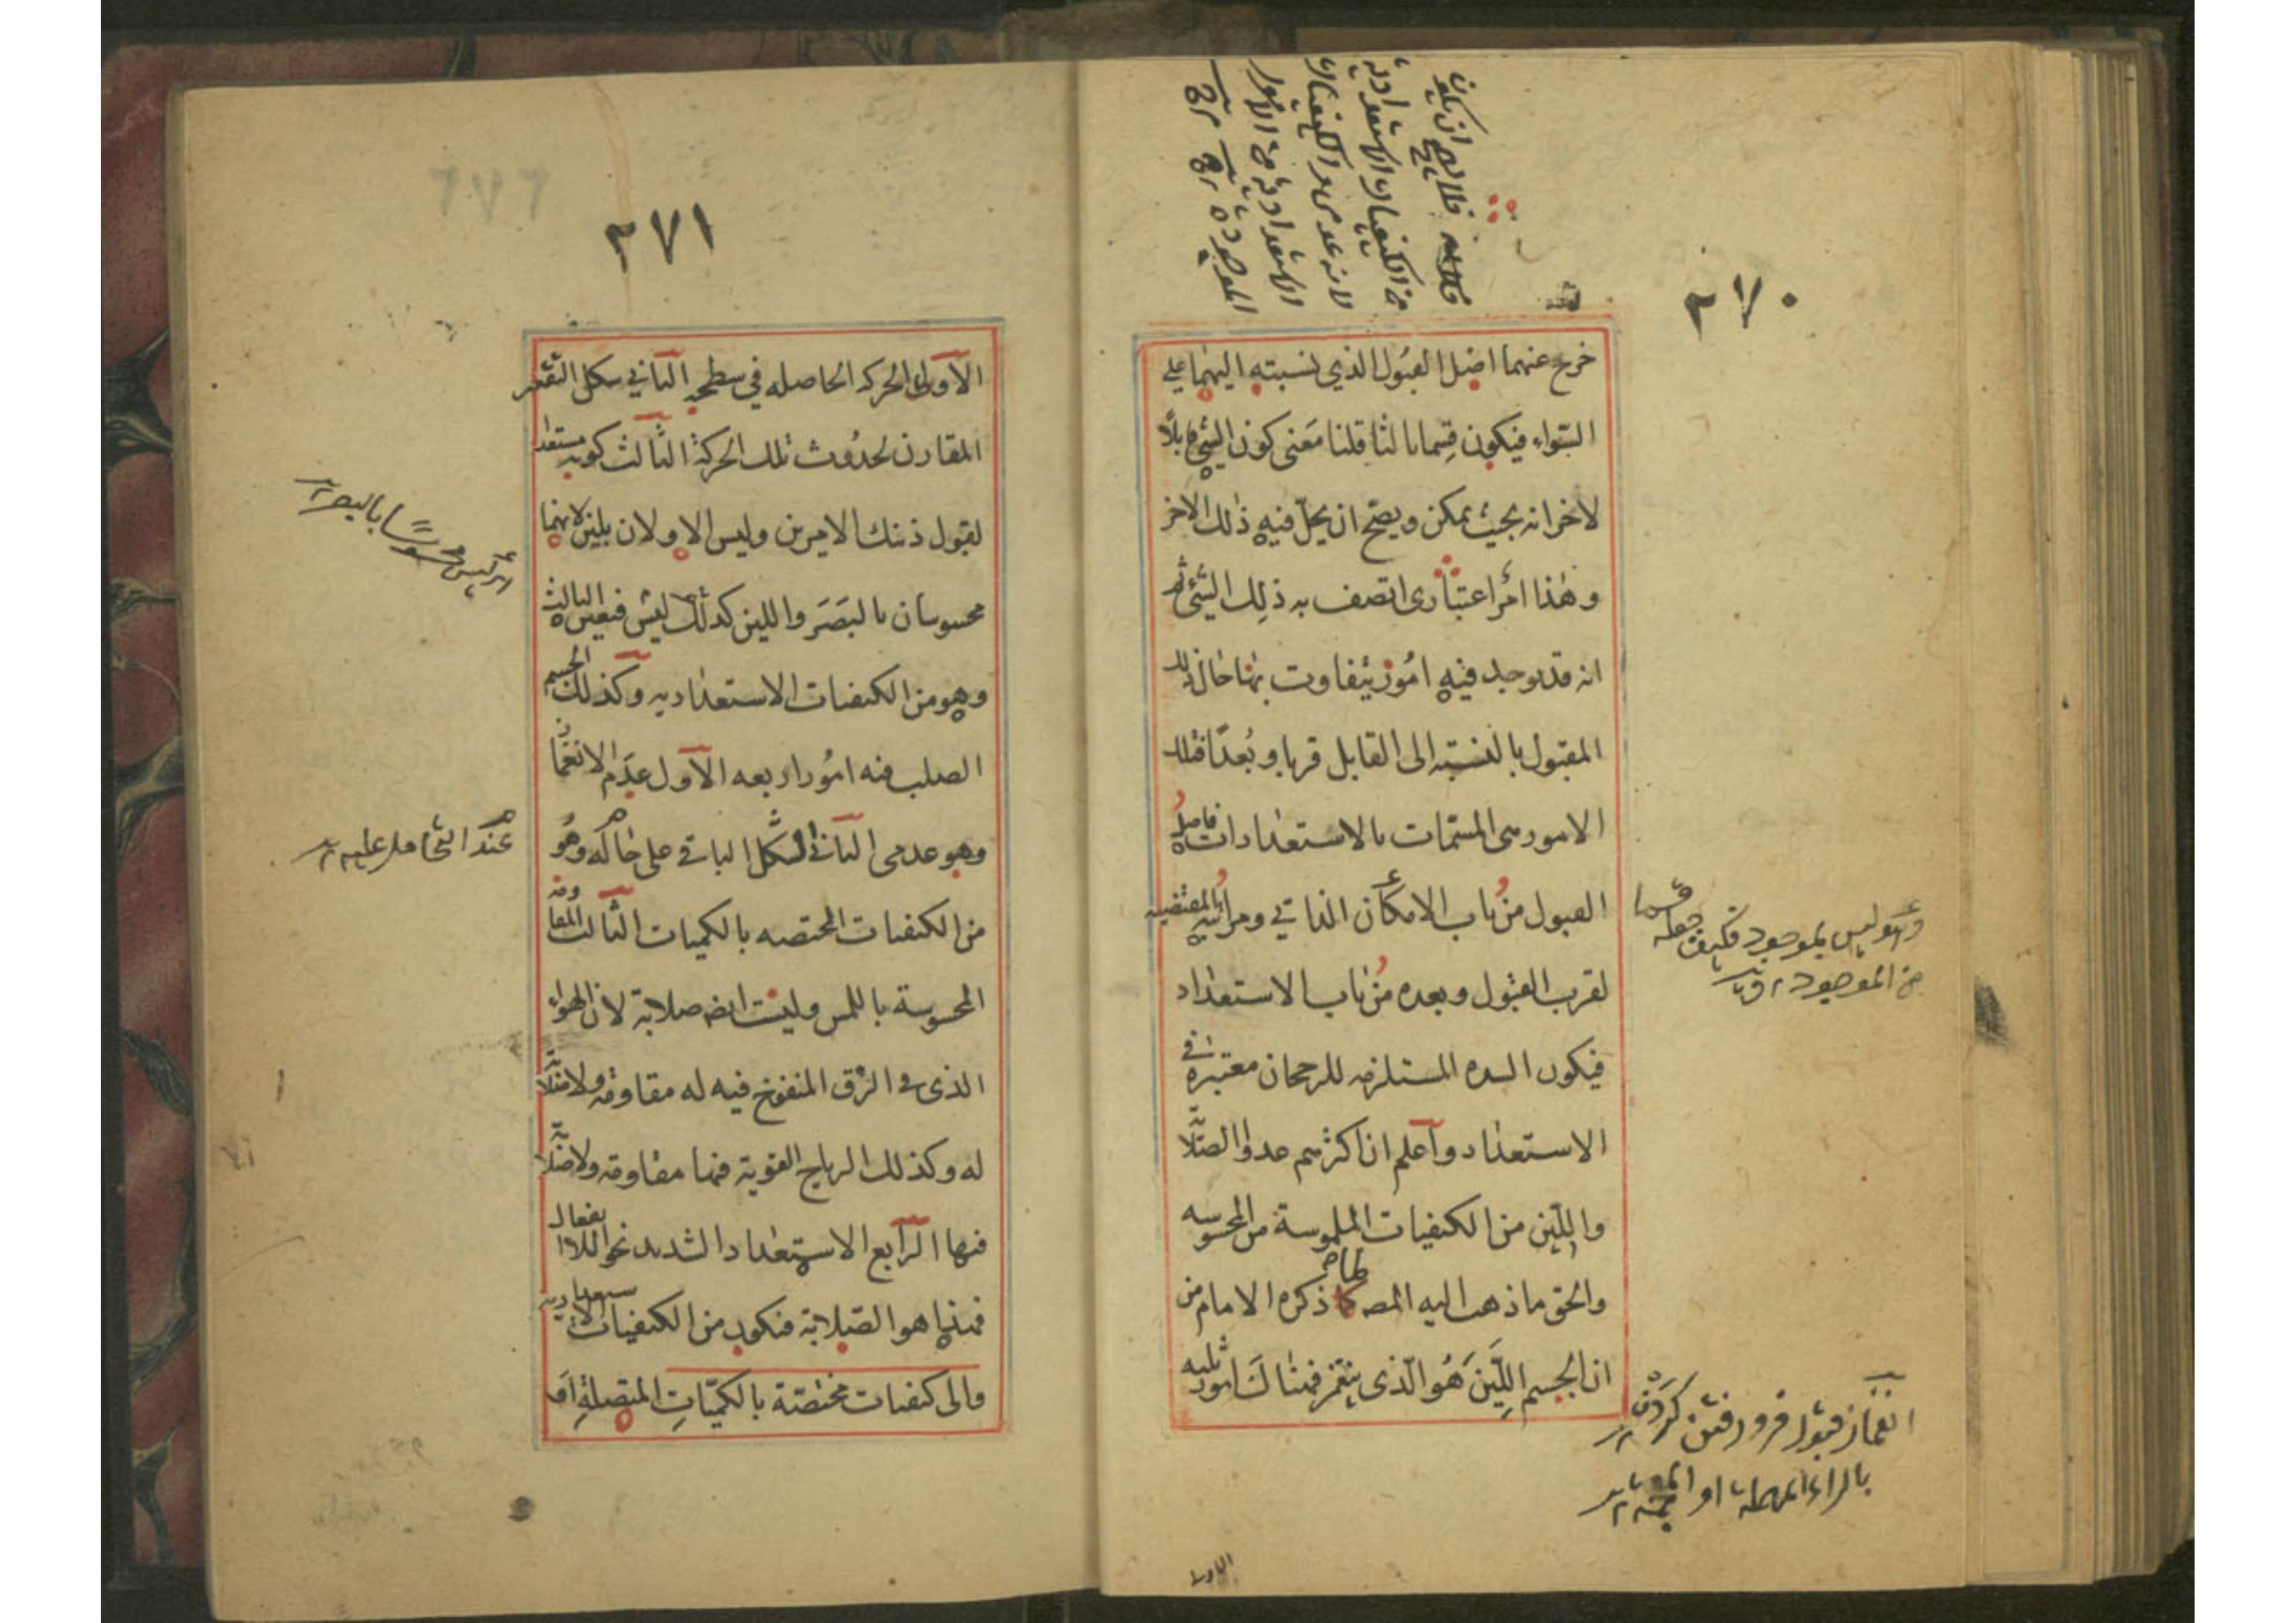 ٢٧٠
فلا يصح ان يكون
من الكيفيات الاستعدادية
لانه عدمى والكيفيات
الاستعدادية من الامور
الموجودة
خرج عنهما اصل القبول الذي نسبته اليهما على
السواء فيكون قسما ثالثا قلنا معنى كون الشيء قابلا
لاخر انه بحيث يمكن ويصح ان يحل فيه ذلك الاخر
وهذا امر اعتبارى اتصف به ذلك الشيء ثم
انه قد يوجد فيه امور يتفاوت بها حال ذلك
المقبول بالنسبة الى القابل قربا وبعدا فتلك
الامور هى المسمات بالاستعدادات فاصل
القبول من باب الامكان الذاتي ومراتبه المقتضيه
لقرب القبول وبعده من باب الاستعداد
فيكون الشدة المستلزمه للرجحان معتبرة في
الاستعداد وآعلم ان اكثرهم عدوا الصلابة
واللين من الكيفيات الملموسة من المحسوسه
والحق ماذهب اليه المصـ لما ذكره الامام من
ان الجسم اللين هو الذى ينغمز فهناك امور ثلثه
وهو ليس بموجود فكيف جعله قسما
من الموجود
انغماز قبول فرو رفتن كردن
بالراء المهملة او المعجمة
الاول
٢٧١
الآول الحركه الحاصله في سطحه الثاني شكل التقعر
المقارن لحدوث تلك الحركة الثالث كونه مستعدا
لقبول ذينك الامرين وليس الاولان بلين لانهما
محسوسان بالبصر واللين كذلك ليس فتعين الثالث
وهو من الكيفيات الاستعداديه وكذلك الجسم
الصلب فيه امور اربعه الآول عدم الانغماز
وهو عدمى الثاني الشكل الباقي على حاله وهو
من الكيفيات المختصه بالكميات الثالث المقاومة
المحسوسة باللمس وليست ايضا صلابة لان الهواء
الذى في الزق المنفوخ فيه له مقاومة ولا صلابة
له وكذلك الرياح القوية فيها مقاومة ولا صلابة
فيها الرآبع الاستعداد الشديد نحو اللاانفعال
فهذا هو الصلابة فيكون من الكيفيات الاستعداديه
والى كيفيات مختصة بالكميات المتصلة
اى ليس محسوسا بالبصر
عند التحامل عليه